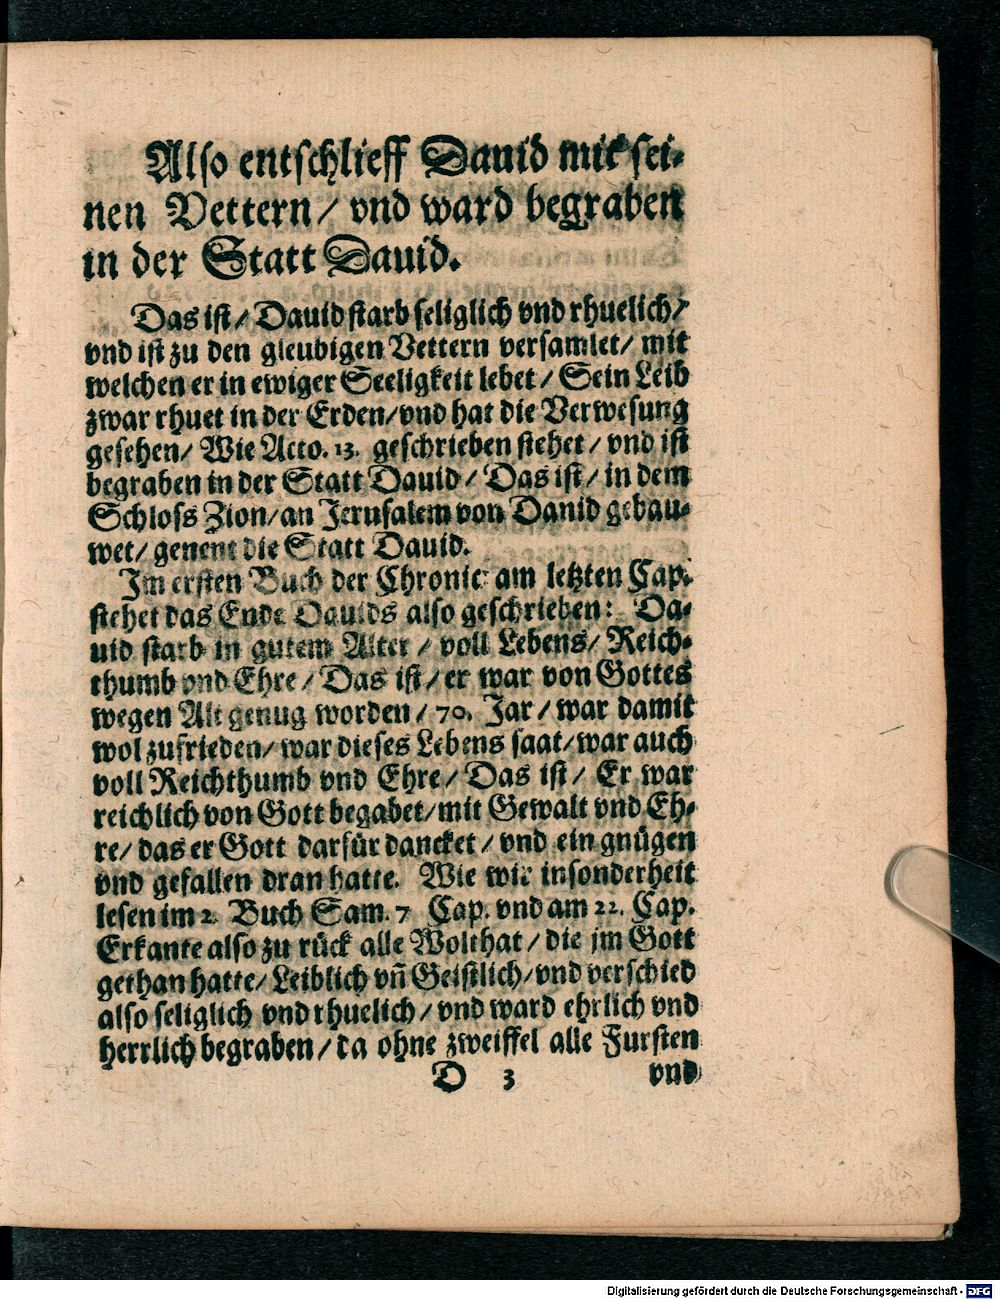 Also entschlieff Dauid mit sei-
nen Vettern / vnd ward begraben
in der Statt Dauid.
Das ist / Dauid starb seliglich vnd rhuelich /
vnd ist zu den gleubigen Vettern versamlet / mit
welchen er in ewiger Seeligkeit lebet / Sein Leib
zwar rhuet in der Erden / vnd hat die Verwesung
gesehen / Wie Acto. 13. geschrieben stehet / vnd ist
begraben in der Statt Dauid / Das ist / in dem
Schloss Zion / an Jerusalem von Dauid gebau-
wet / genent die Statt Dauid.
Im ersten Buch der Chronic am letzten Cap.
stehet das Ende Dauids also geschrieben: Da-
uid starb in gutem Alter / voll Lebens / Reich-
thumb vnd Ehre / Das ist / er war von Gottes
wegen Alt genug worden / 70. Jar / war damit
wol zufrieden / war dieses Lebens saat / war auch
voll Reichthumb vnd Ehre / Das ist / Er war
reichlich von Gott begabet / mit Gewalt vnd Eh-
re / das er Gott darfür dancket / vnd ein gnügen
vnd gefallen dran hatte. Wie wir insonderheit
lesen im 2. Buch Sam. 7 Cap. vnd am 22. Cap.
Erkante also zu rück alle Wolthat / die jm Gott
gethan hatte / Leiblich vn̄ Geistlich / vnd verschied
also seliglich vnd rhuelich / vnd ward ehrlich vnd
herrlich begraben / da ohne zweiffel alle Fursten
D 3 vnd
Digitalisierung gefördert durch die Deutsche Forschungsgemeinschaft - DFG